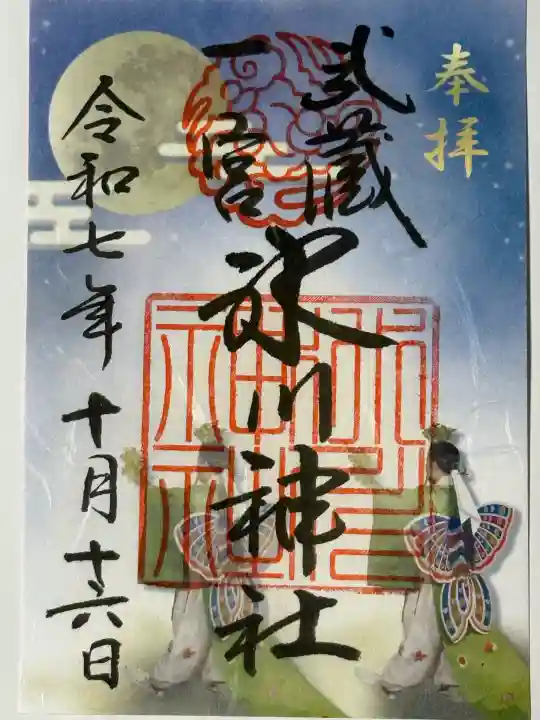 奉拝
武蔵
一宮
氷川神社
氷川
神社
令和七年十月十六日